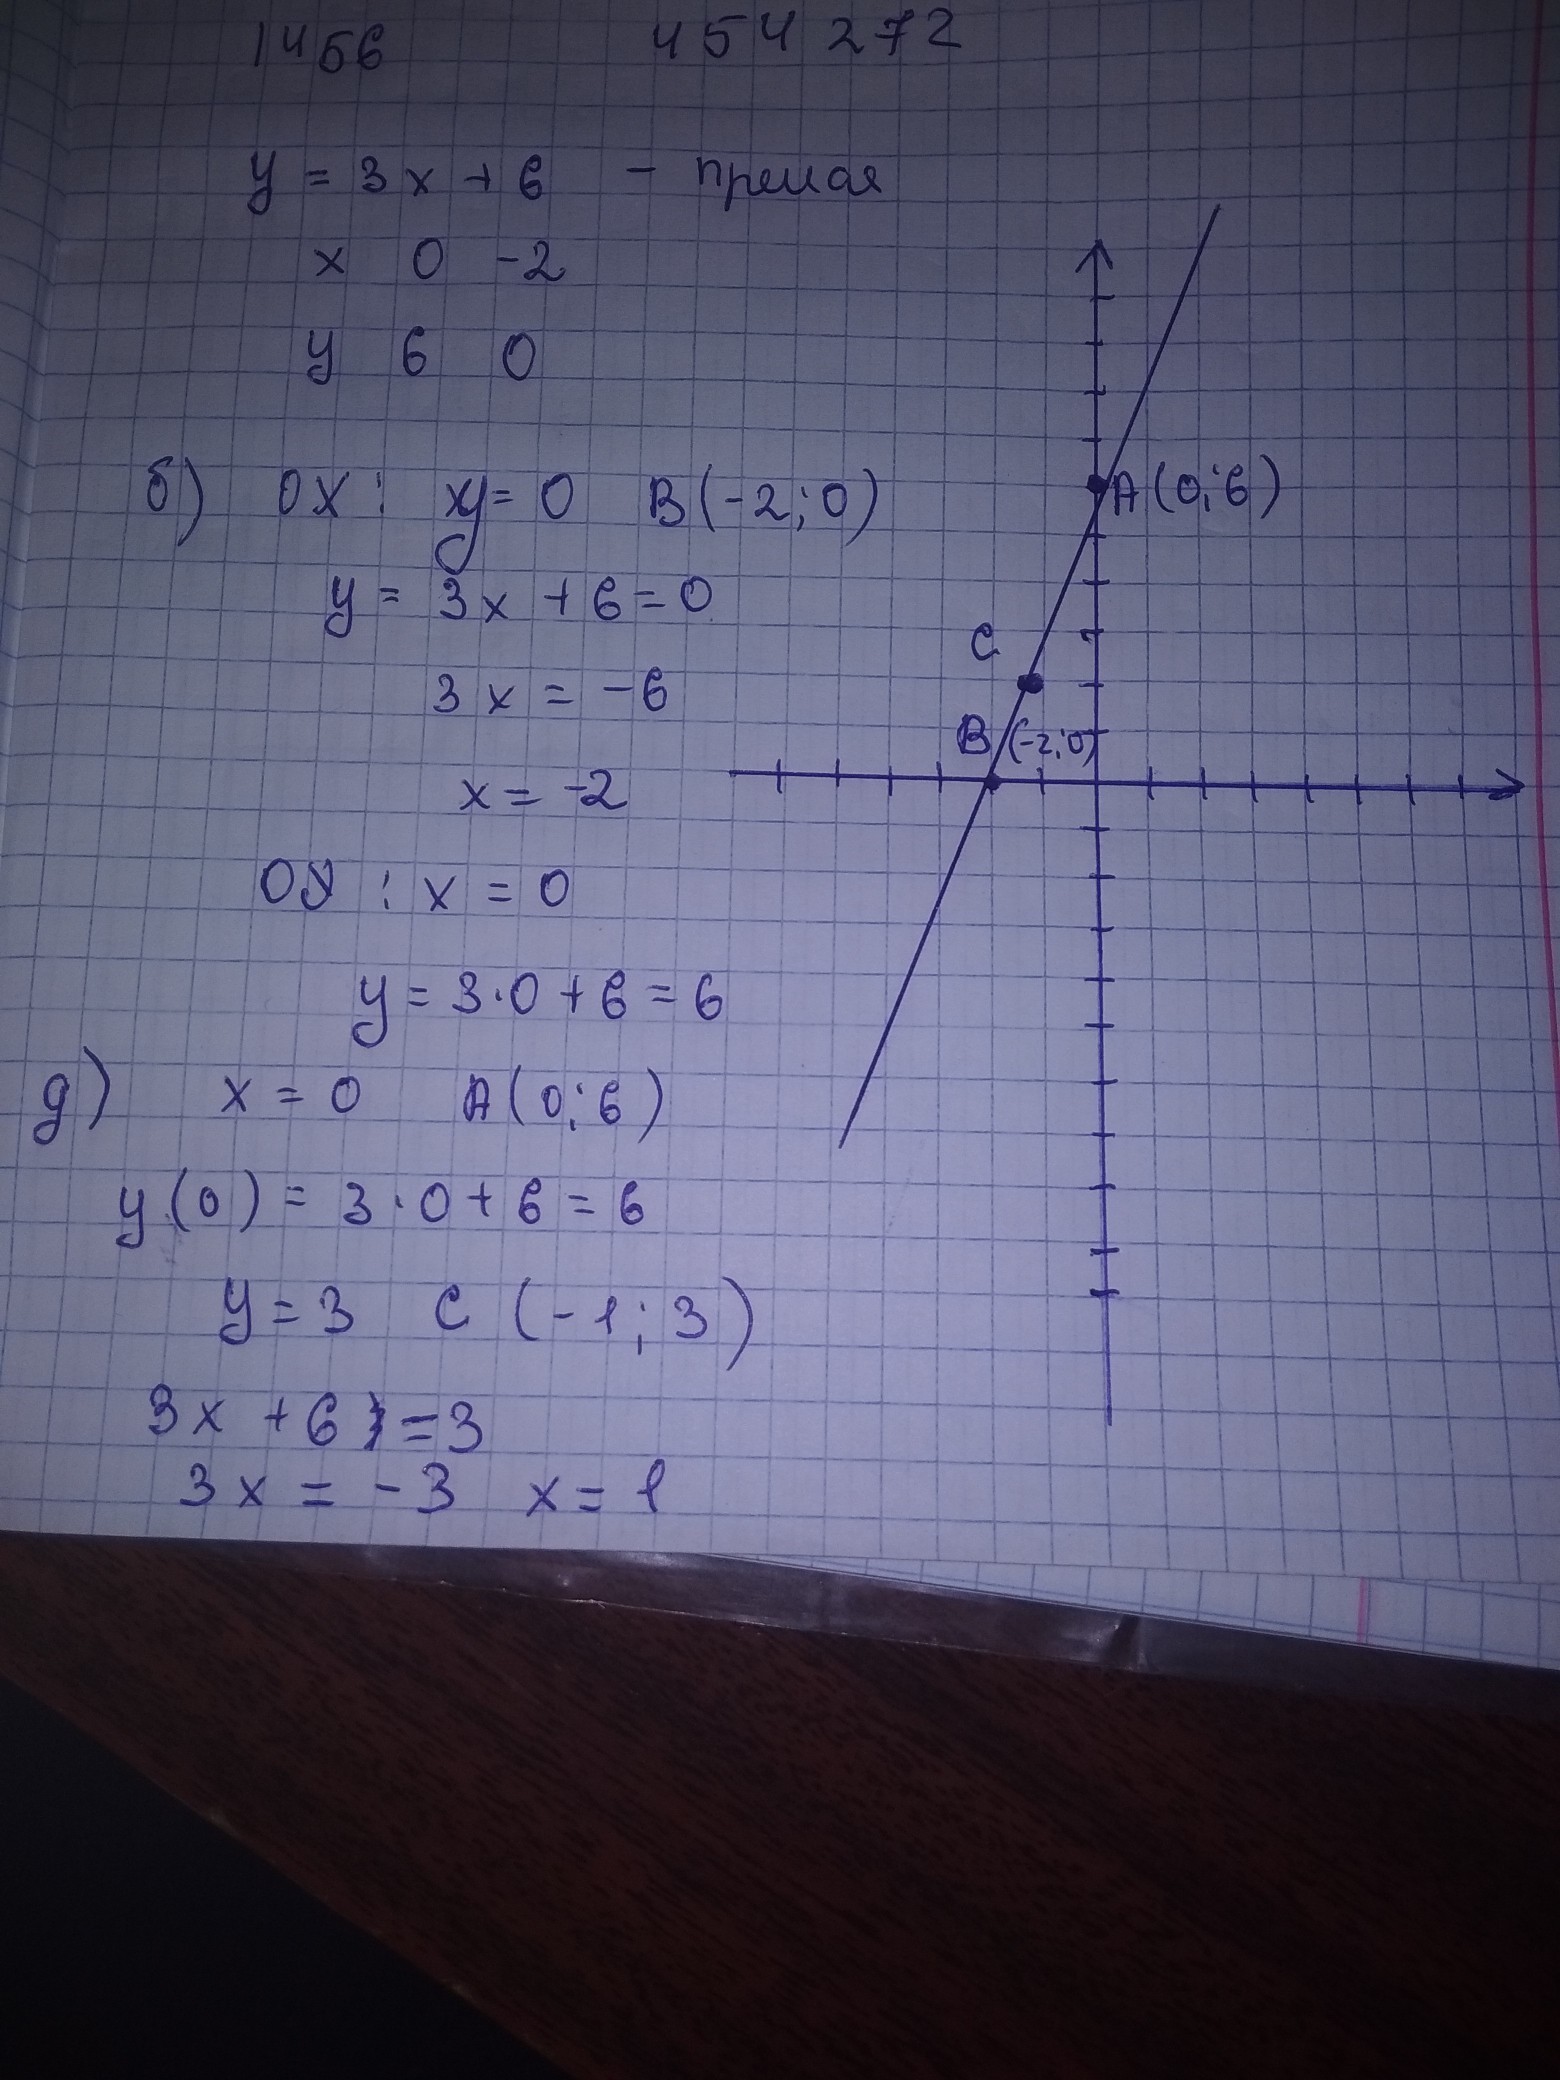 1456 454 272
y = 3x + 6 - прямая
x 0 -2
y 6 0
б) OX: y = 0 B(-2;0)
y = 3x + 6 = 0
3x = -6
x = -2
OY : x = 0
y = 3·0 + 6 = 6
g) x = 0 A(0;6)
y(0) = 3·0 + 6 = 6
y = 3 C (-1;3)
3x + 6 = 3
3x = -3 x = 1
A(0;6)
C
B (-2;0)